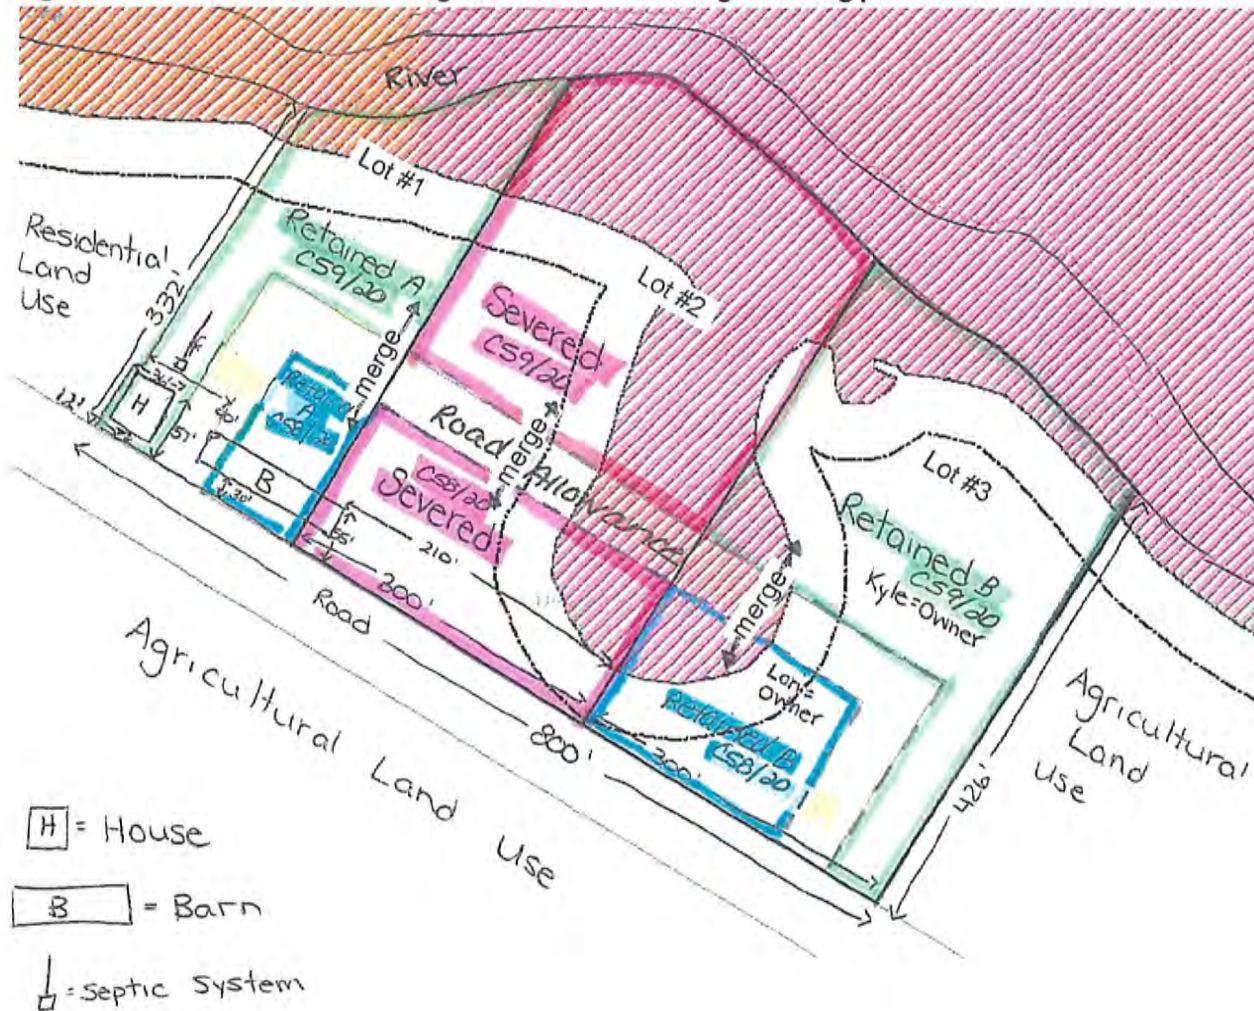 River
Lot #1
Residential
Land
Use
332'
Retained A
C59/20
Lot #2
Severed
C59/20
merge
Retained
A
C58/20
H
12'
57'
40'
B
30'
Road Allowance
merge
C58/20
Severed
55'
210'
200'
Road
Lot #3
Retained B
C59/20
Kyle=Owner
merge
Owner
Retained B
C58/20
300'
800'
426'
Agricultural Land Use
Agricultural
Land
Use
H = House
B = Barn
= Septic System